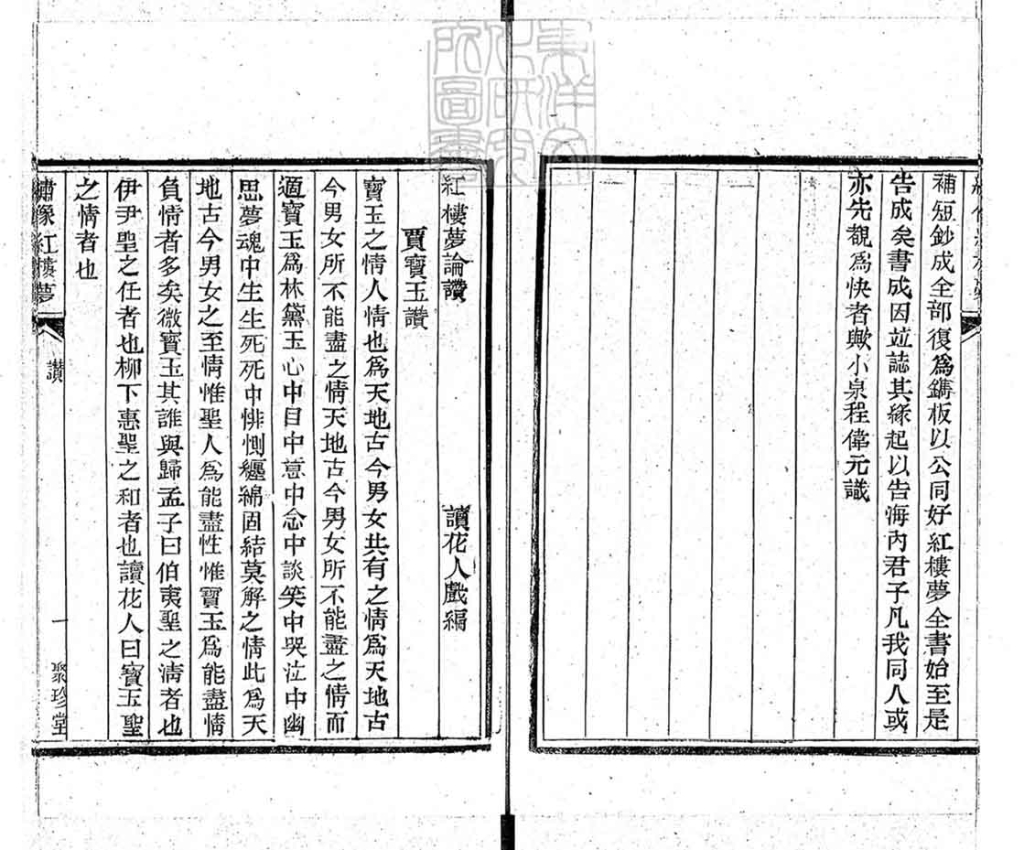 補短鈔成全部復爲鐫板以公同好紅樓夢全書始至是
告成矣書成因竝誌其緣起以告海內君子凡我同人或
亦先覩爲快者歟小泉程偉元識
紅樓夢論讚
讀花人戲編
賈寶玉讚
寶玉之情人情也爲天地古今男女共有之情爲天地古
今男女所不能盡之情天地古今男女所不能盡之情而
適寶玉爲林黛玉心中目中意中念中談笑中哭泣中幽
思夢魂中生生死死中悱惻纏綿固結莫解之情此爲天
地古今男女之至情惟聖人爲能盡性惟寶玉爲能盡情
負情者多矣微寶玉其誰與歸孟子曰伯夷聖之淸者也
伊尹聖之任者也柳下惠聖之和者也讀花人曰寶玉聖
之情者也
繡像紅樓夢
讚
一
聚珍堂
東洋文
化研究
所圖書